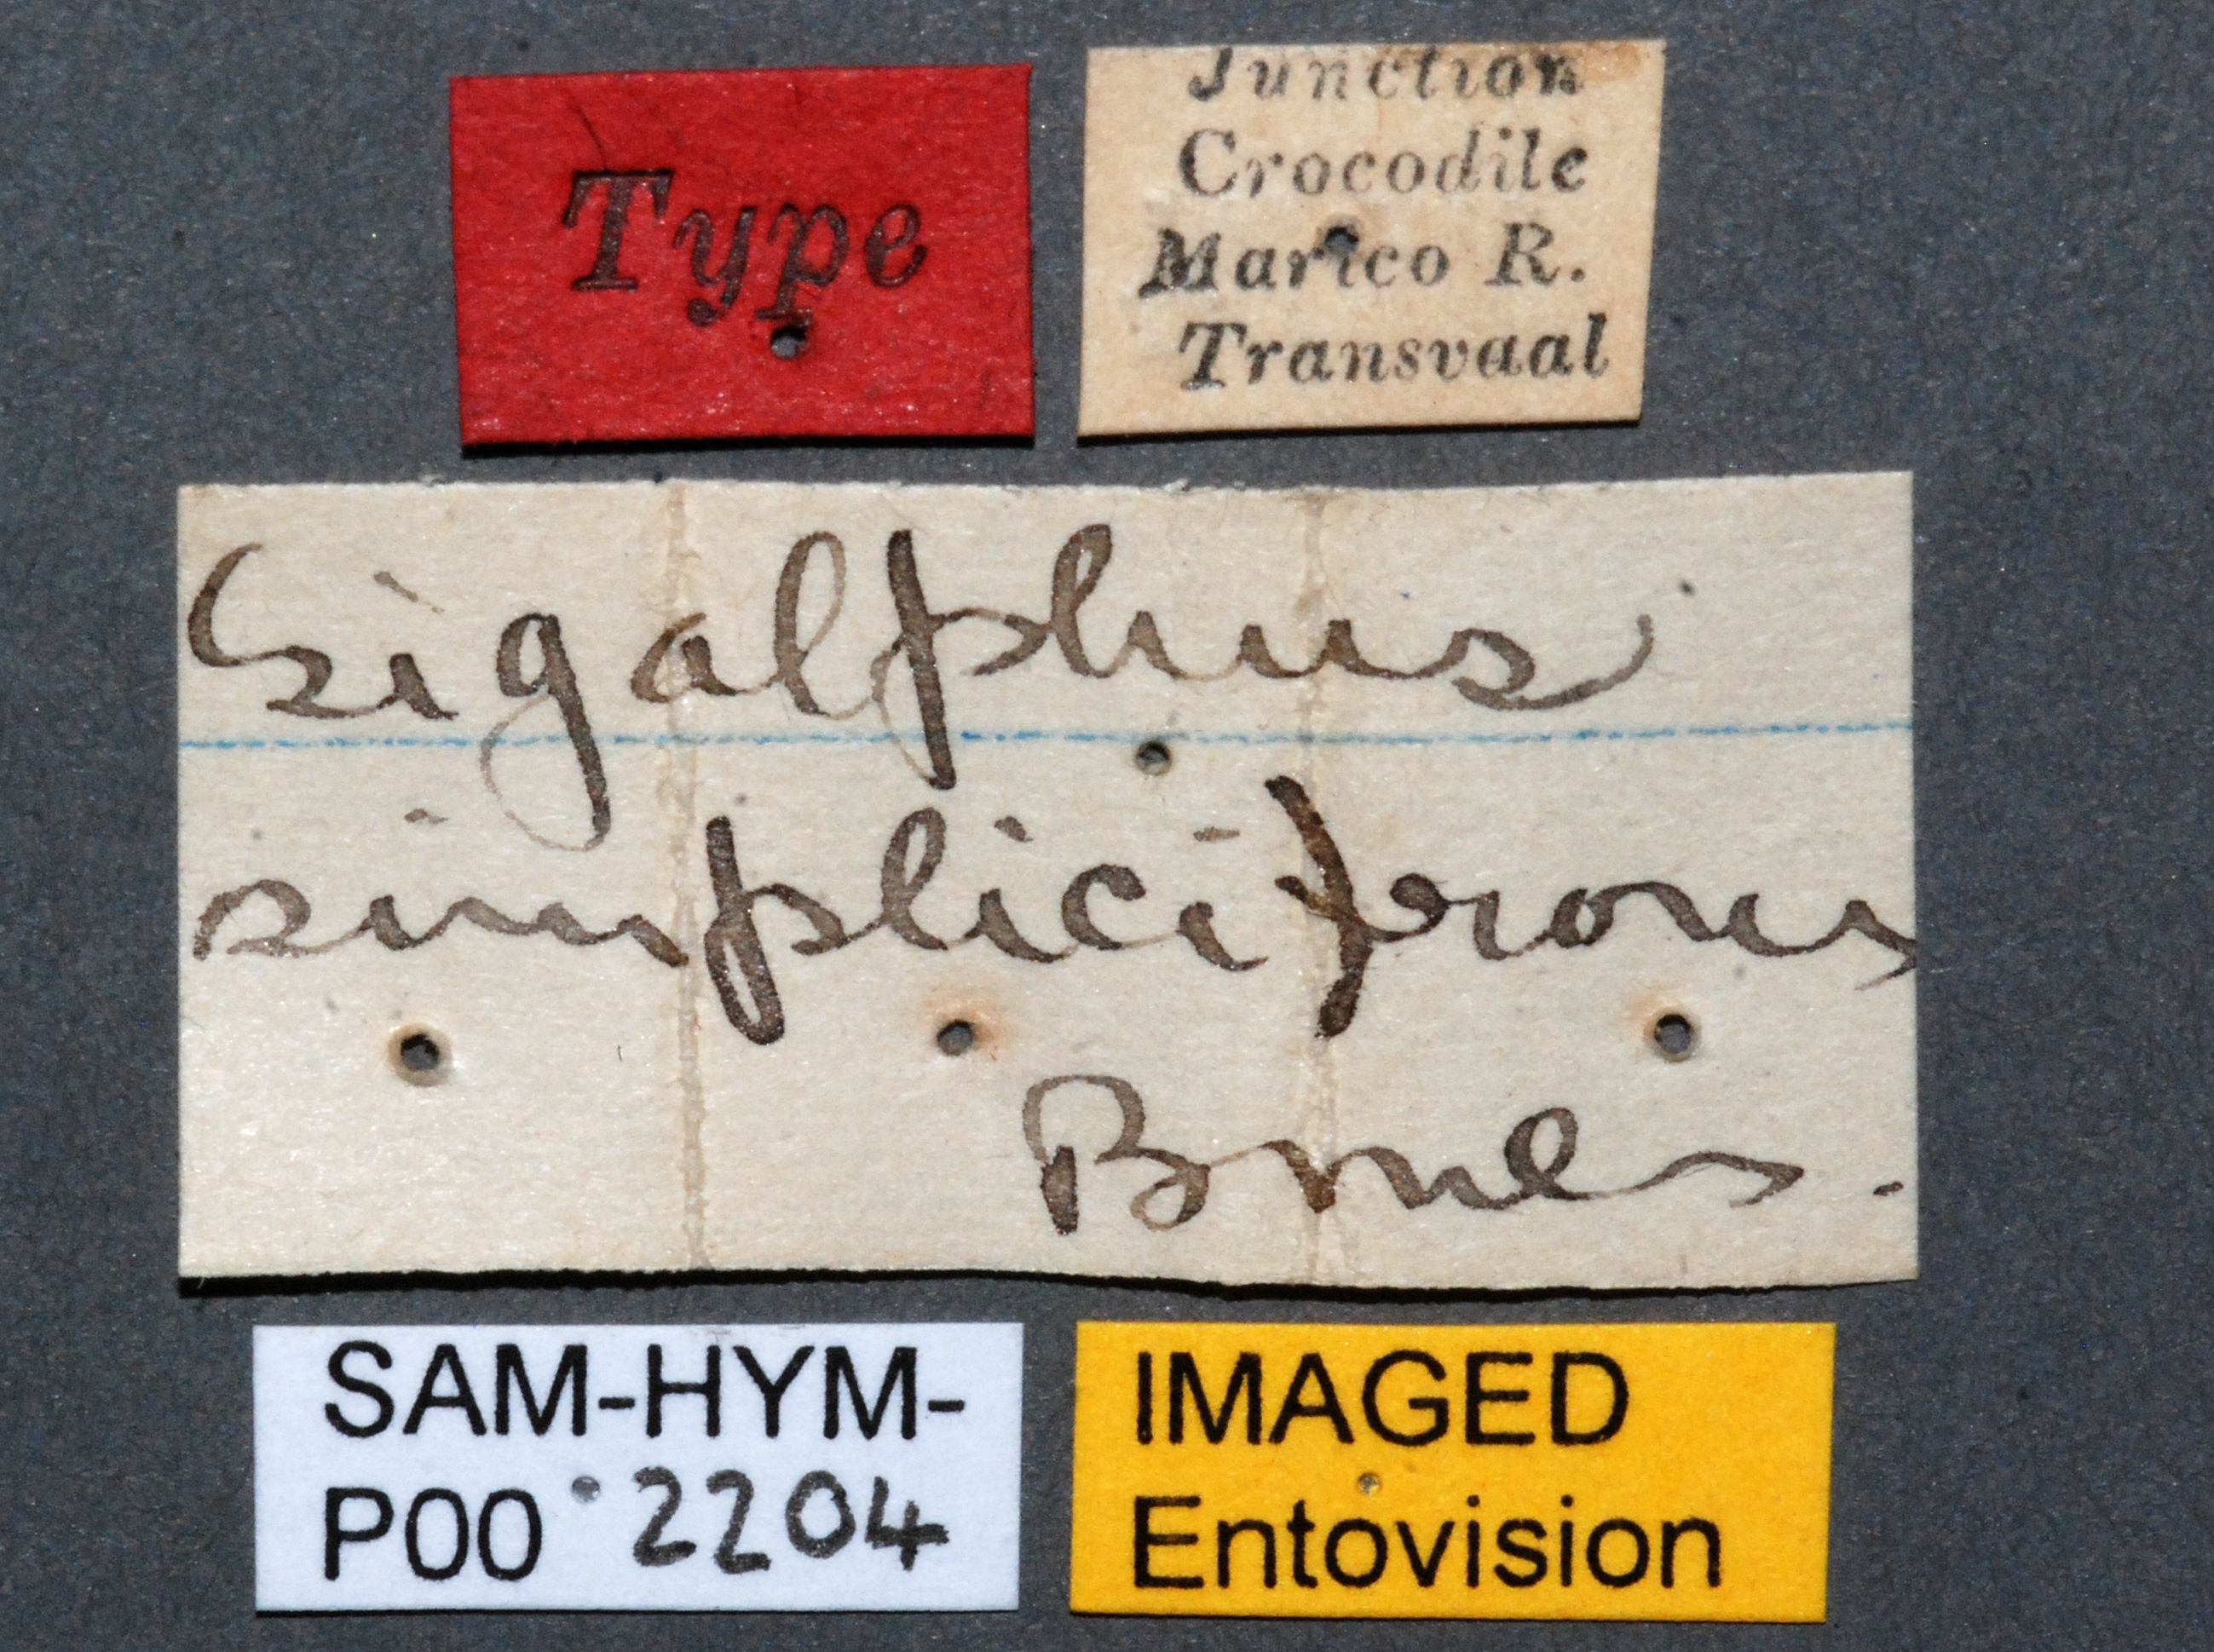 Type
Junction
Crocodile
Marico R.
Transvaal
Sigalphus
simplicifrons
Brues.
SAM-HYM-
P00 2204
IMAGED
Entovision